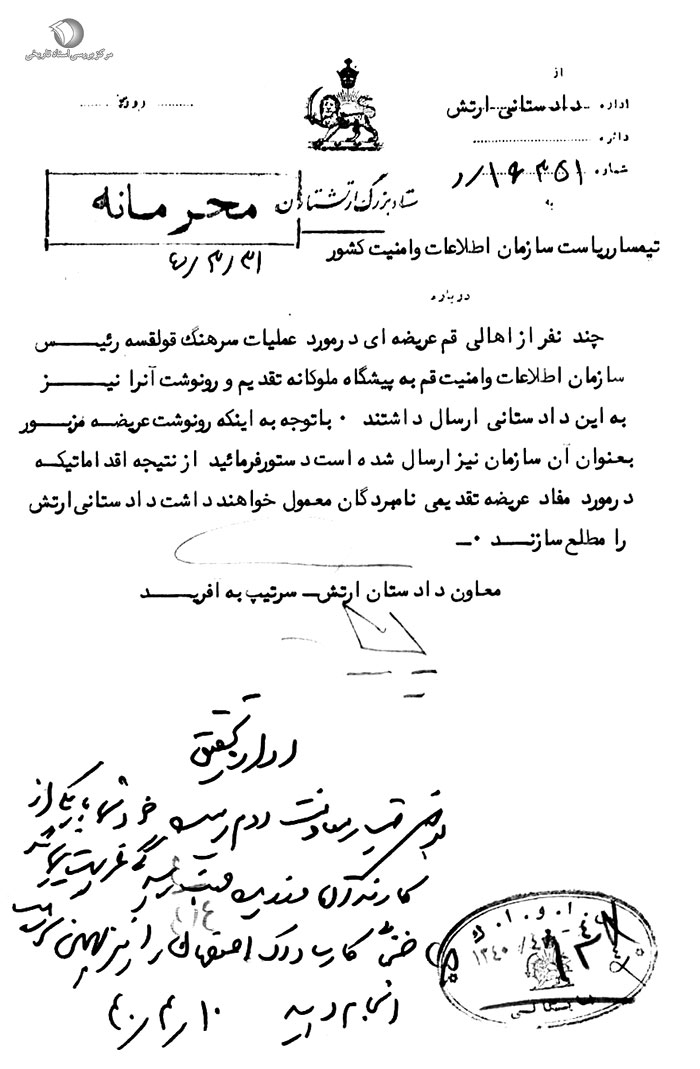 مرکز بررسی اسناد تاریخی
از
اداره دادستانی ارتش
روزنامه
دائره
شماره ۱۶۳۵۱/د
به
ستاد بزرگ ارتشتاران
محرمانه
۴۰/۳/۳۱
تیمسار ریاست سازمان اطلاعات وامنیت کشور
درباره
چند نفر از اهالی قم عریضه ای درمورد عملیات سرهنگ قولقسه رئیس
سازمان اطلاعات وامنیت قم به پیشگاه ملوکانه تقدیم و رونوشت آنرا نیز
به این دادستانی ارسال داشتند ۰ باتوجه به اینکه رونوشت عریضه مزبور
بعنوان آن سازمان نیز ارسال شده است دستورفرمائید از نتیجه اقداماتیکه
درمورد مفاد عریضه تقدیمی نامبردگان معمول خواهند داشت دادستانی ارتش
را مطلع سازند ۰ـ
معاون دادستان ارتش ـ سرتیپ به آفرید
اداره تحقیق
معاونت دوم خود شما یا یکی از
کارمندان
ضمناً کار ساواک اصفهان را نیز
انجام دهید ۴۰/۴/۱۰
۱۳۴۰/۴/
بایگانی